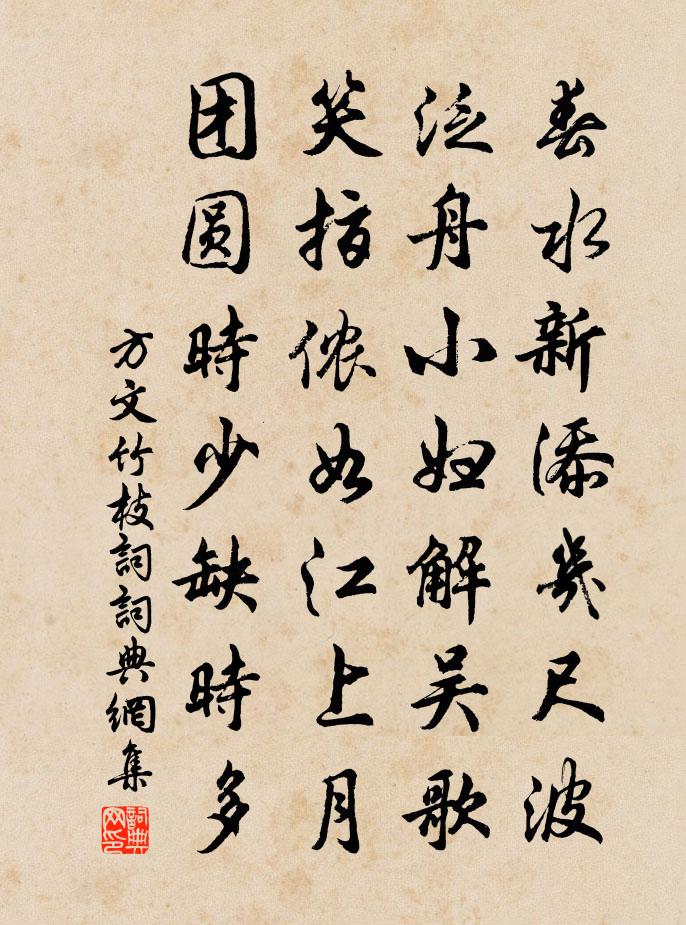 春水新添幾尺波
泛舟小妇解吴歌
笑指侬如江上月
团圆時少缺時多
方文竹枝詞詞典網集
詞典网印